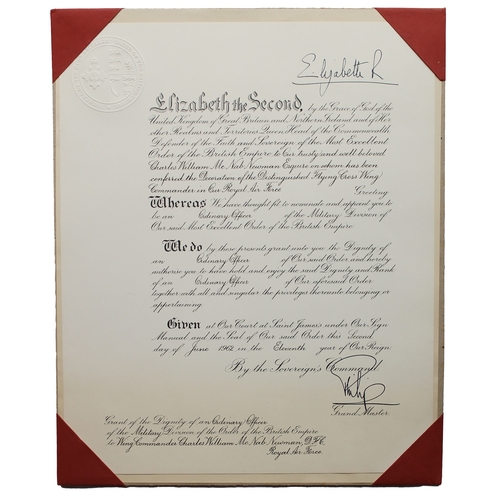 Elizabeth R
Elizabeth the Second, by the Grace of God of the
United Kingdom of Great Britain and Northern Ireland and of Her
other Realms and Territories Queen, Head of the Commonwealth,
Defender of the Faith and Sovereign of the Most Excellent
Order of the British Empire to Our trusty and well beloved
Charles William Mc Nab Newman Esquire on whom has been
conferred the Decoration of the Distinguished Flying Cross Wing
Commander in Our Royal Air Force Greeting
Whereas We have thought fit to nominate and appoint you to
be an Ordinary Officer of the Military Division of
Our said Most Excellent Order of the British Empire
We do by these presents grant unto you the Dignity of
an Ordinary Officer of Our said Order and hereby
authorise you to have hold and enjoy the said Dignity and Rank
of an Ordinary Officer of Our aforesaid Order
together with all and singular the privileges thereunto belonging or
appertaining
Given at Our Court at Saint James's under Our Sign
Manual and the Seal of Our said Order this Second
day of June 1962 in the Eleventh year of Our Reign
By the Sovereign's Command.
Philip
Grand Master.
Grant of the Dignity of an Ordinary Officer
of the Military Division of the Order of the British Empire
to Wing Commander Charles William Mc Nab Newman, D.F.C.
Royal Air Force